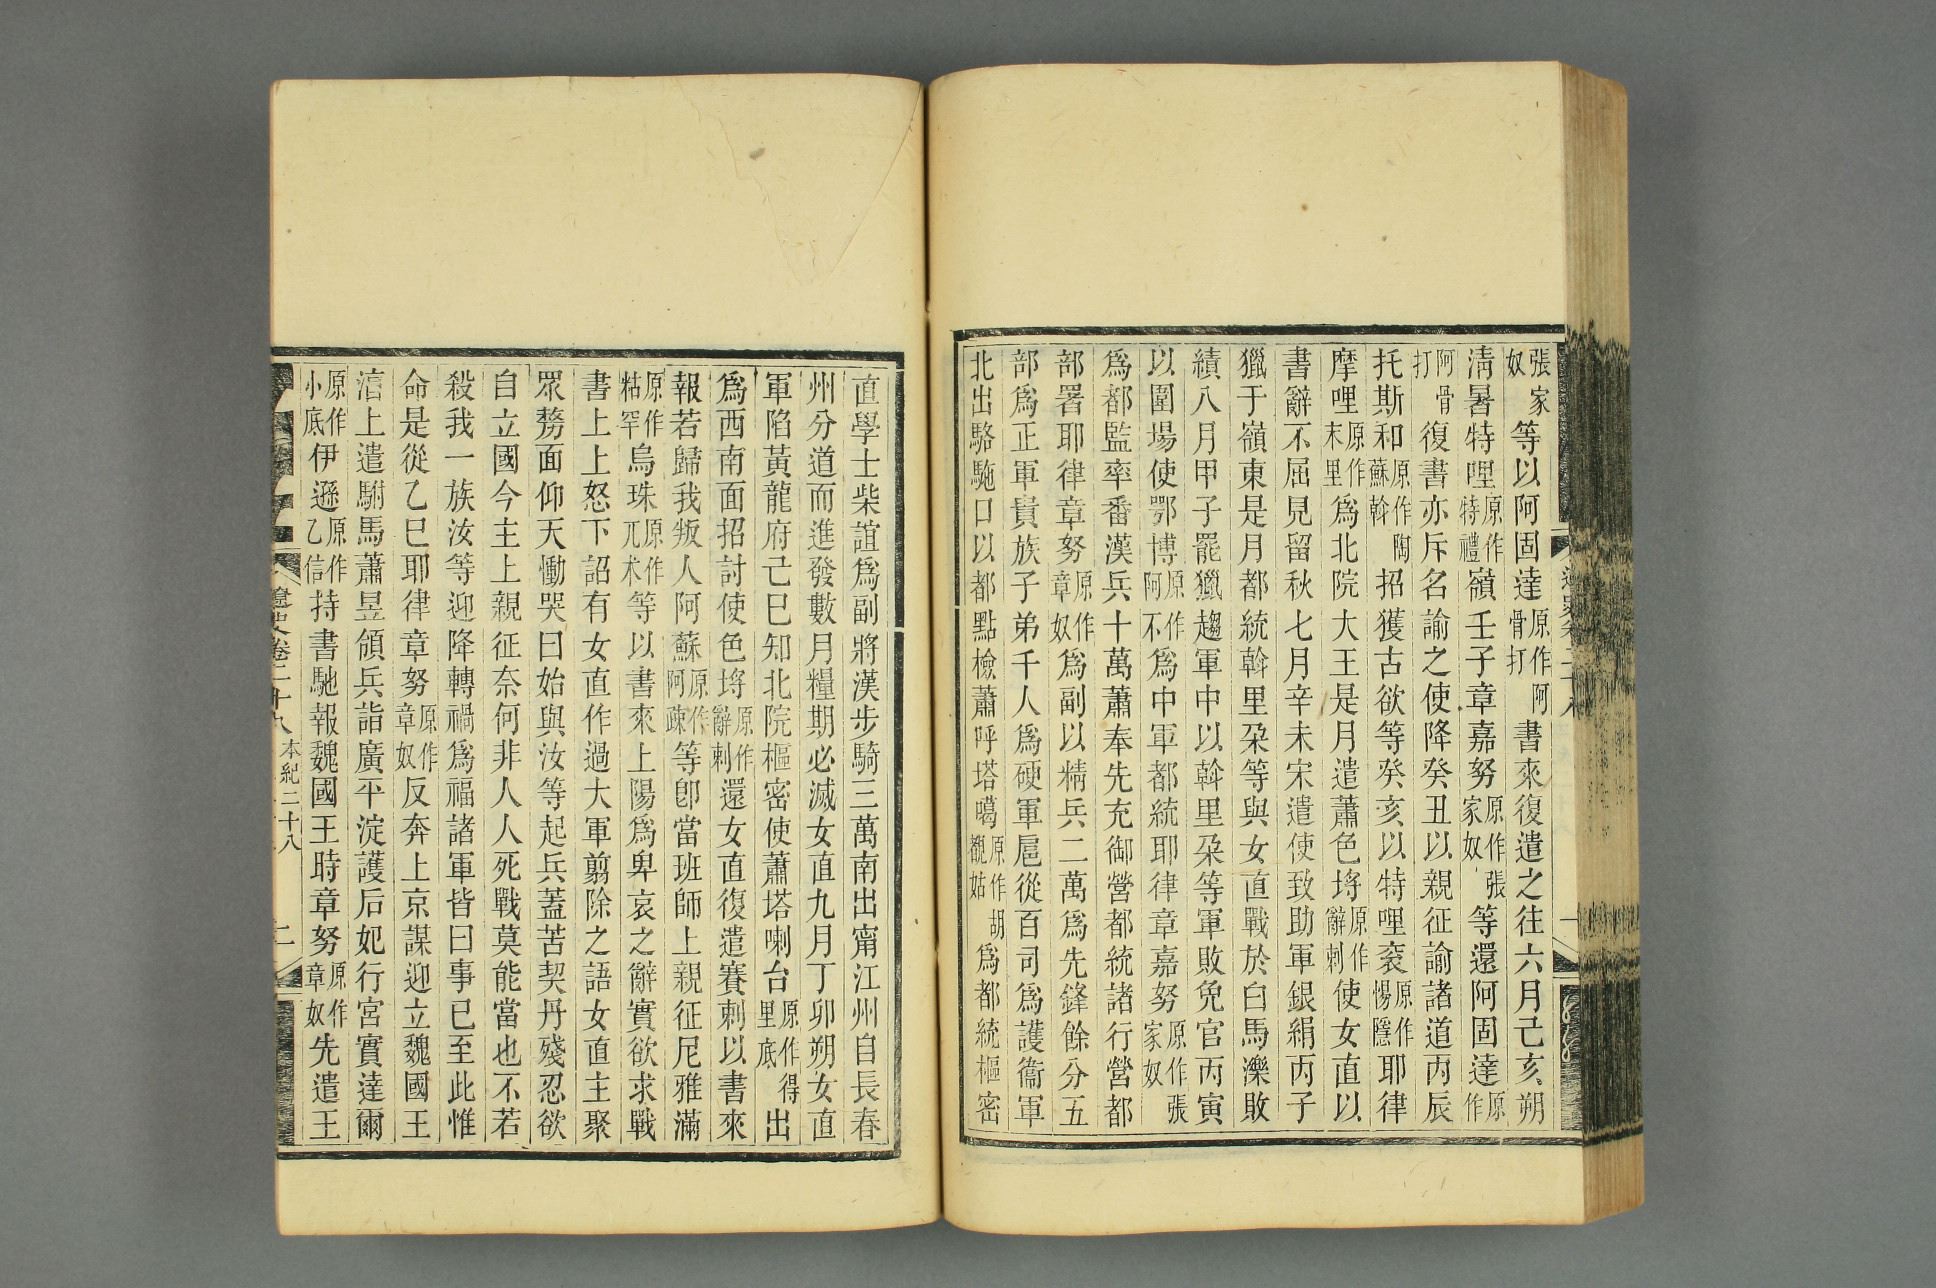 張家奴等以阿固達原作阿骨打書來復遣之往六月己亥朔
淸暑特哩原作特禮嶺壬子章嘉努原作張家奴等還阿固達原作
阿骨打復書亦斥名諭之使降癸丑以親征諭諸道丙辰
托斯和原作陶蘇斡招獲古欲等癸亥以特哩袞原作惕隱耶律
摩哩原作末里爲北院大王是月遣蕭色埒原作辭剌使女直以
書辭不屈見留秋七月辛未宋遣使致助軍銀絹丙子
獵于嶺東是月都統斡里朶等與女直戰於白馬濼敗
績八月甲子罷獵趨軍中以斡里朶等軍敗免官丙寅
以圍場使鄂博原作阿不爲中軍都統耶律章嘉努原作張家奴
爲都監率番漢兵十萬蕭奉先充御營都統諸行營都
部署耶律章努原作章奴爲副以精兵二萬爲先鋒餘分五
部爲正軍貴族子弟千人爲硬軍扈從百司爲護衞軍
北出駱駞口以都點檢蕭呼塔噶原作胡覩姑爲都統樞密
直學士柴誼爲副將漢步騎三萬南出甯江州自長春
州分道而進發數月糧期必滅女直九月丁卯朔女直
軍陷黃龍府己巳知北院樞密使蕭塔喇台原作得里底出
爲西南面招討使色埒原作辭剌還女直復遣賽剌以書來
報若歸我叛人阿蘇原作阿疎等卽當班師上親征尼雅滿
原作粘罕烏珠原作兀朮等以書來上陽爲卑哀之辭實欲求戰
書上上怒下詔有女直作過大軍翦除之語女直主聚
眾剺面仰天慟哭曰始與汝等起兵蓋苦契丹殘忍欲
自立國今主上親征奈何非人人死戰莫能當也不若
殺我一族汝等迎降轉禍爲福諸軍皆曰事已至此惟
命是從乙巳耶律章努原作章奴反奔上京謀迎立魏國王
湻上遣駙馬蕭昱領兵詣廣平淀護后妃行宮實達爾
原作小底伊遜原作乙信持書馳報魏國王時章努原作章奴先遣王
遼史卷二十八 本紀二十八 二